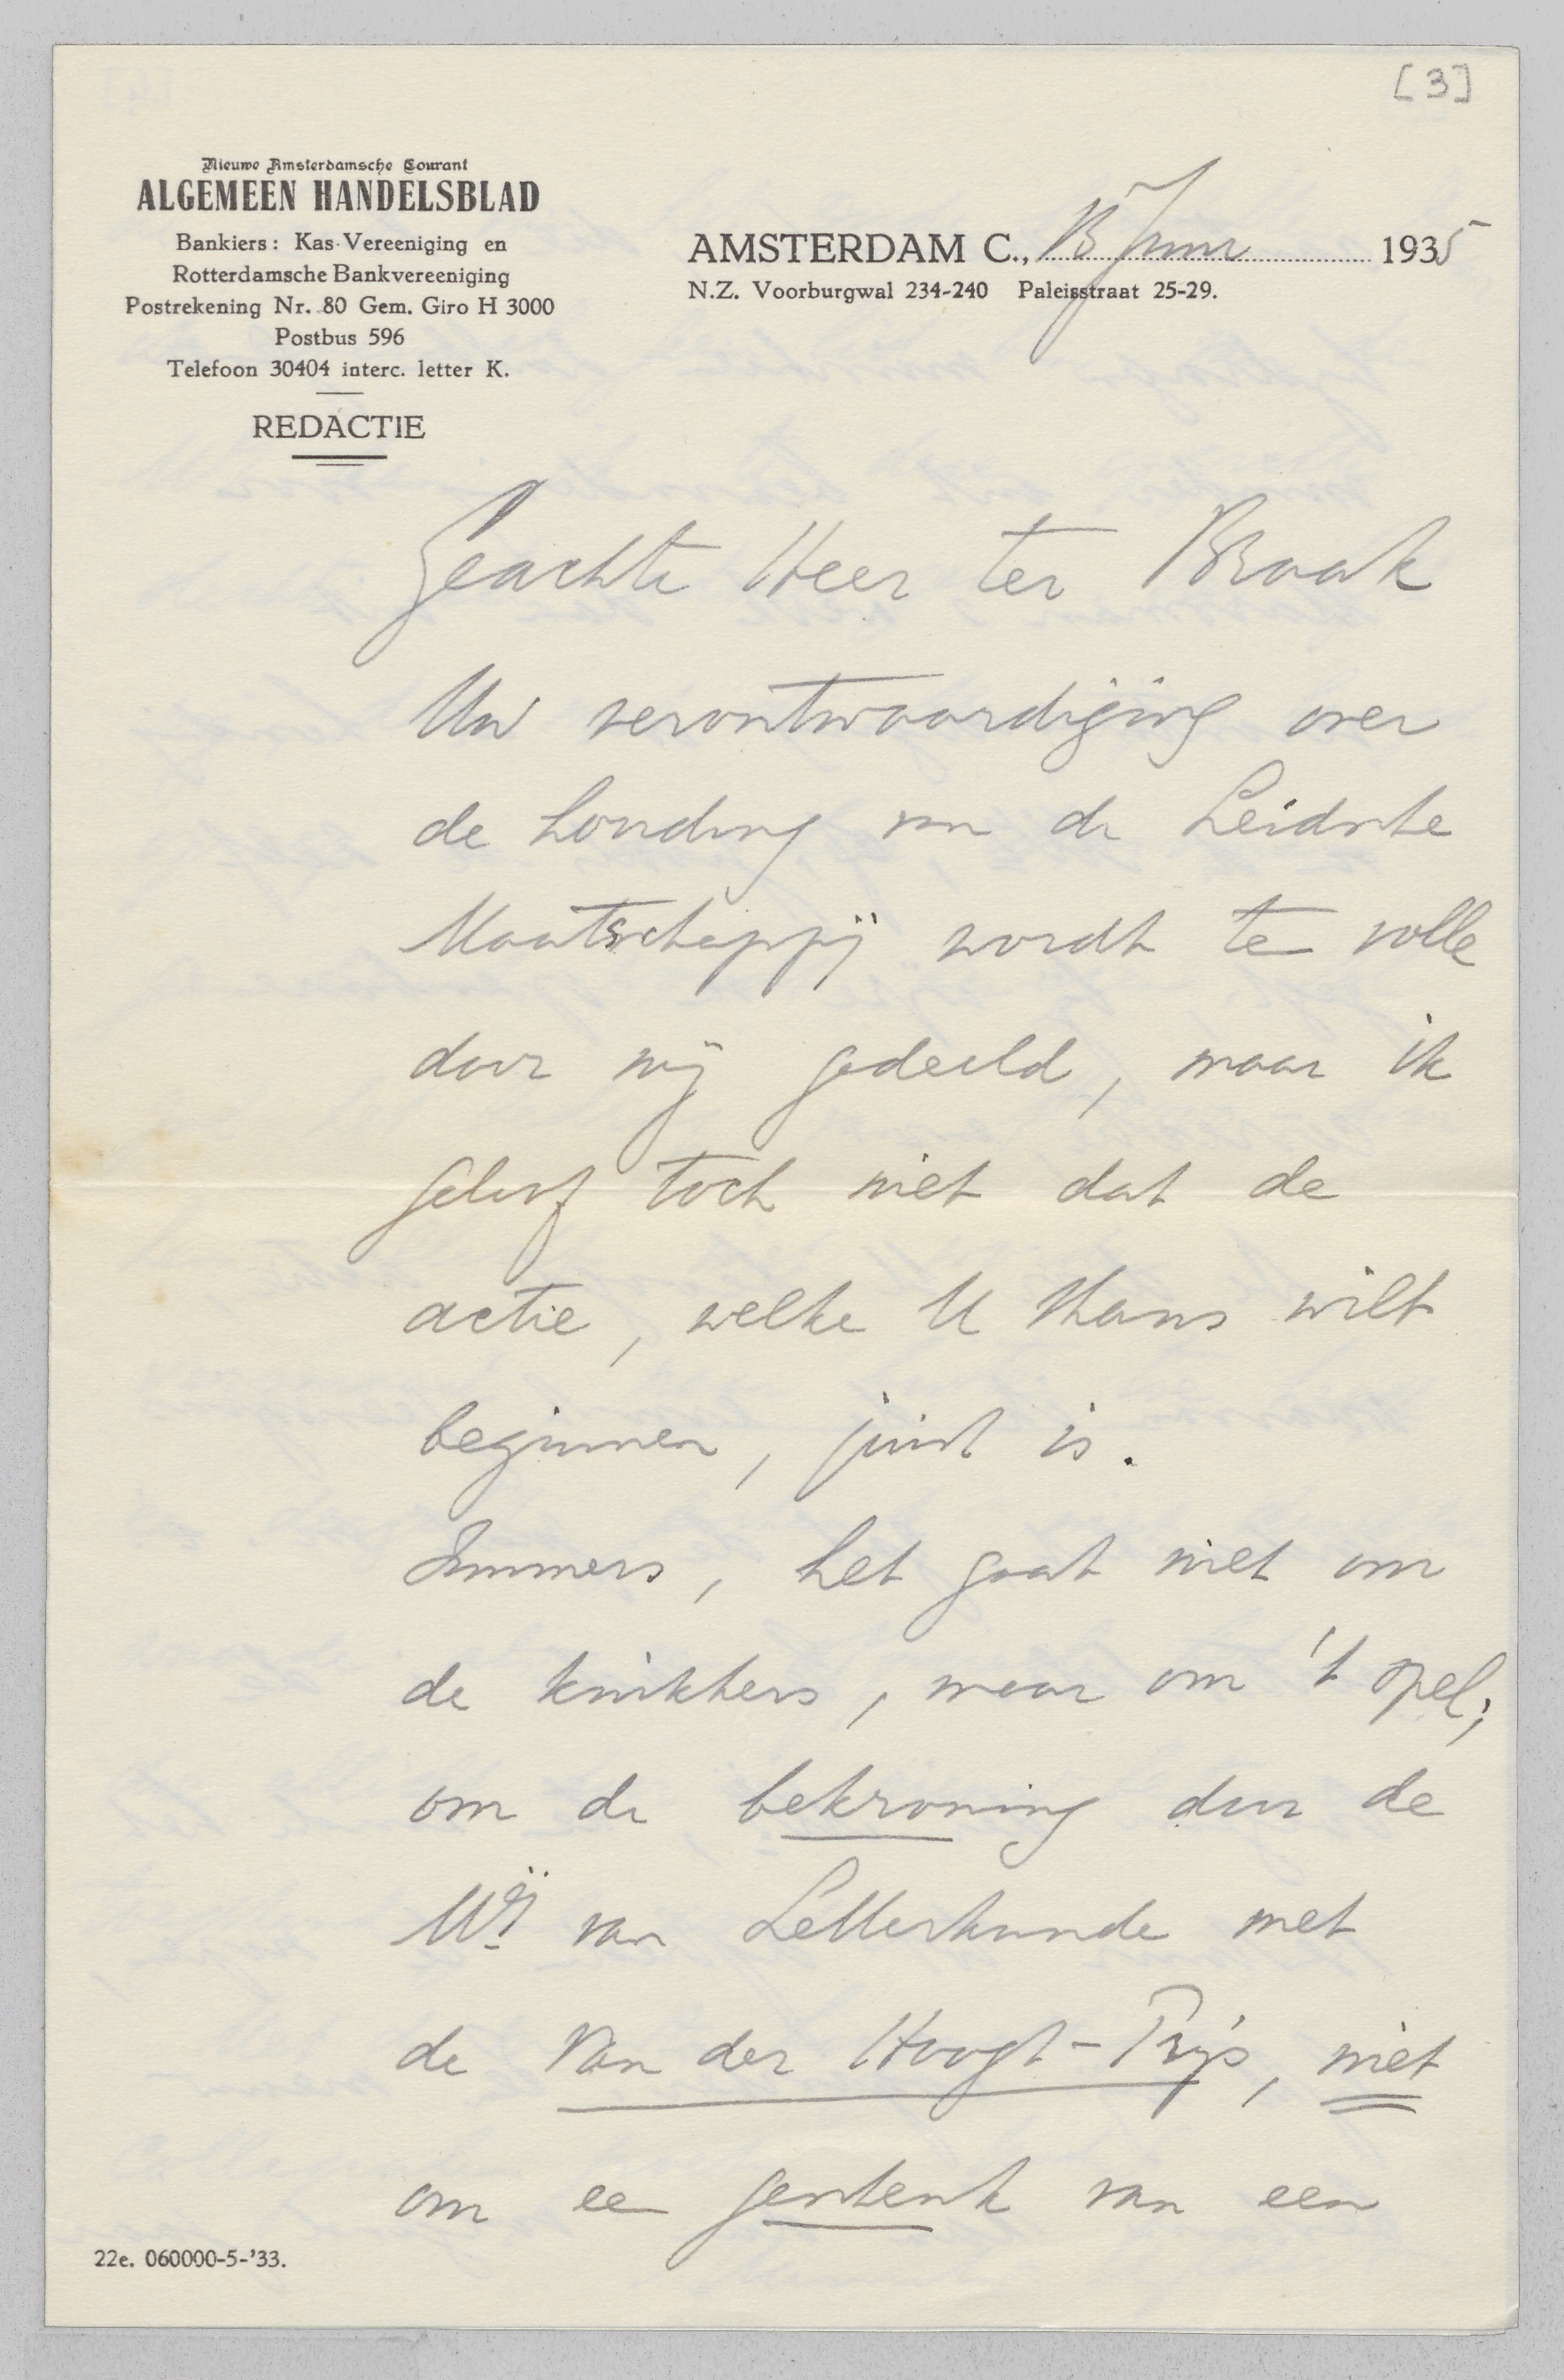 [3]
Nieuwe Amsterdamsche Courant
ALGEMEEN HANDELSBLAD
Bankiers: Kas-Vereeniging en
Rotterdamsche Bankvereeniging
Postrekening Nr. 80 Gem. Giro H 3000
Postbus 596
Telefoon 30404 interc. letter K.
REDACTIE
AMSTERDAM C., Juni 1935
N.Z. Voorburgwal 234-240 Paleisstraat 25-29.
Geachte Heer ter Braak
Uw verontwaardiging over
de houding van de Leidsche
Maatschappij wordt te volle
door mij gedeeld, maar ik
geloof toch niet dat de
actie, welke U thans wilt
beginnen, juist is.
Immers, het gaat niet om
de knikkers, maar om 't spel;
om de bekroning door de
Mij van Letterkunde met
de Van der Hoogt-Prijs, niet
om een geschenk van een
22e. 060000-5-'33.